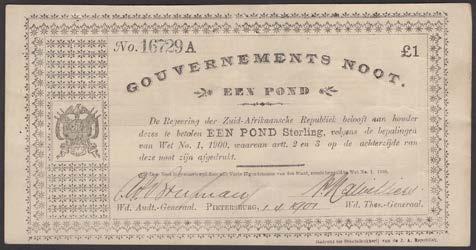 No. 16729 A £1
GOUVERNEMENTS NOOT.
EEN POND
De Regeering der Zuid-Afrikaansche Republiek belooft aan houder
dezes te betalen EEN POND Sterling, volgens de bepalingen
van Wet No. 1, 1900, waarvan artt. 2 en 3 op de achterzijde van
deze noot zijn afgedrukt.
Wd. Audt.-Generaal. PIETERSBURG, Wd. Thes.-Generaal.